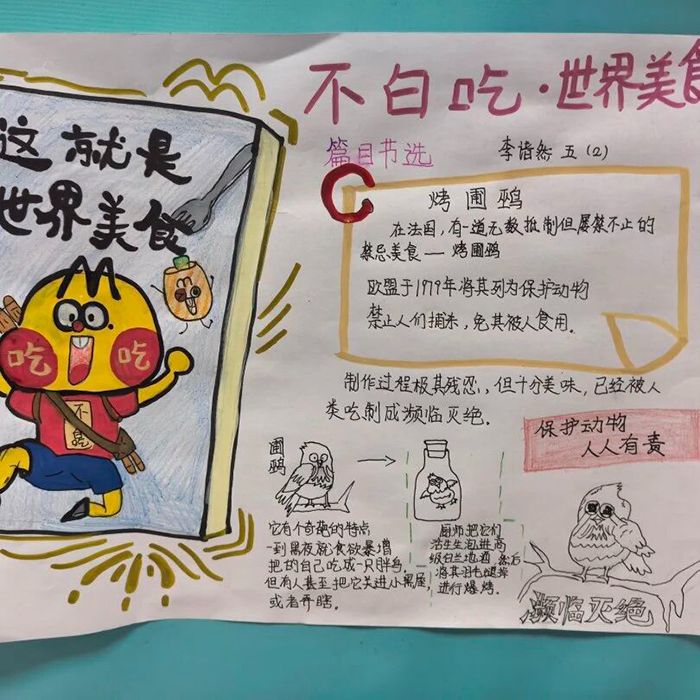 不白吃·世界美食
篇目节选
李谙然 五(2)
这就是
世界美食
吃
吃
不白吃
烤圃鹀
在法国,有一道无数抵制但屡禁不止的
禁忌美食——烤圃鹀
欧盟于1979年将其列为保护动物
禁止人们捕杀,免其被人食用.
制作过程极其残忍,但十分美味,已经被人
类吃制成濒临灭绝.
保护动物
人人有责
圃鹀
它有个奇葩的特点
一到黑夜就食欲暴增
把的自己吃成一只胖鸟.
但有人甚至把它关进小黑屋
或者弄瞎.
厨师把它们
活生生泡进高
级白兰地酒
然后
将其羽毛褪
进行爆烤.
濒临灭绝